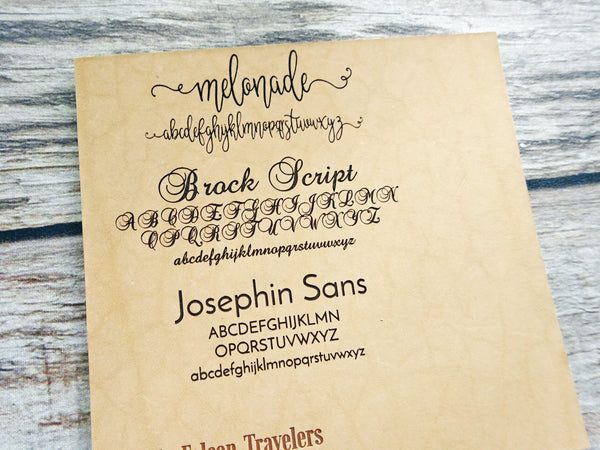 melonade
abcdefghyklmnopqrstuvwxyz
Brock Script
ABCDEFGHIJKLMN
OPQRSTUVWXYZ
abcdefghijklmnopqrstuvwxyz
Josephin Sans
ABCDEFGHIJKLMN
OPQRSTUVWXYZ
abcdefghijklmnopqrstuvwxyz
Travelers